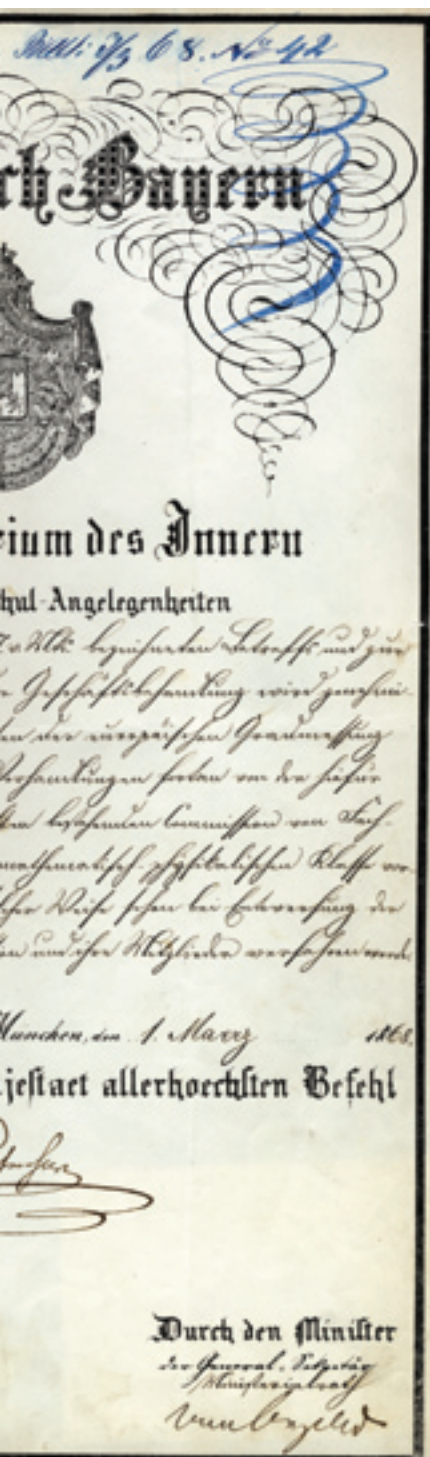 68. No 42
ch Bayern
rium des Innern
chul-Angelegenheiten
bezeichneten Betreffs und zur
Geschäftsbehandlung wird genehmi-
en der europäischen Gradmessung
Verhandlungen fortan von der hiefür
bestehenden Commission von Fach-
mathematisch-physikalischen Klasse
cher Weise schon bei Entwerfung der
en und ihre Mitglieder verfahren werde.
München, den 1. Maerz 1868.
jestaet allerhoechsten Befehl
Durch den Minister
der General-Sekretär
Ministerialrath